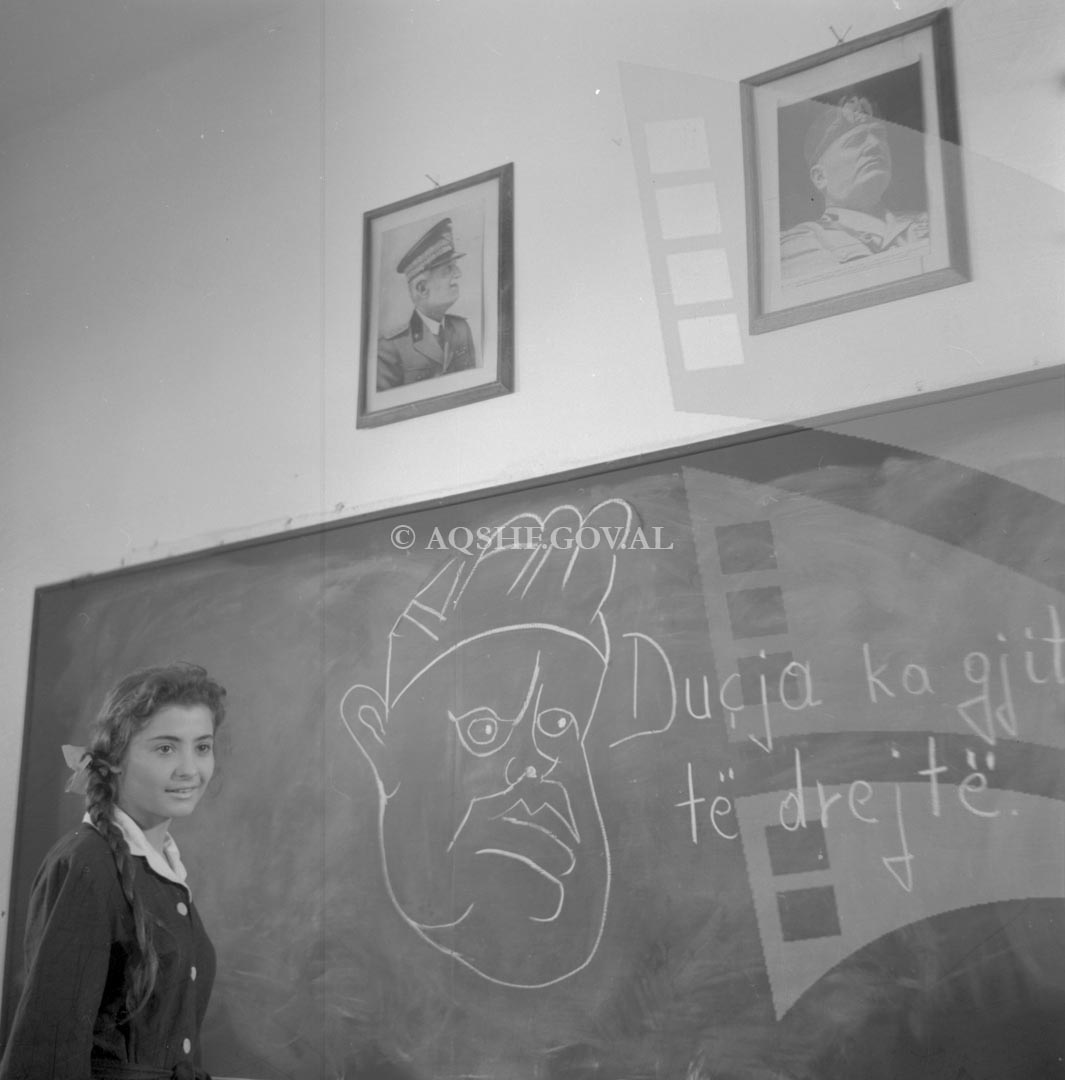 © AQSHF.GOV.AL
Duçja ka gjit
të drejtë.